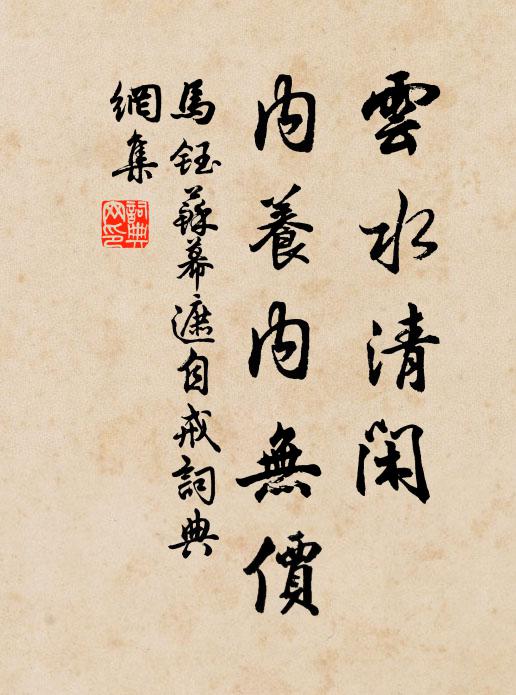 雲水清閑
內養內無價
馬鈺蘇幕遮自戒詞典
網集
詞典
网印